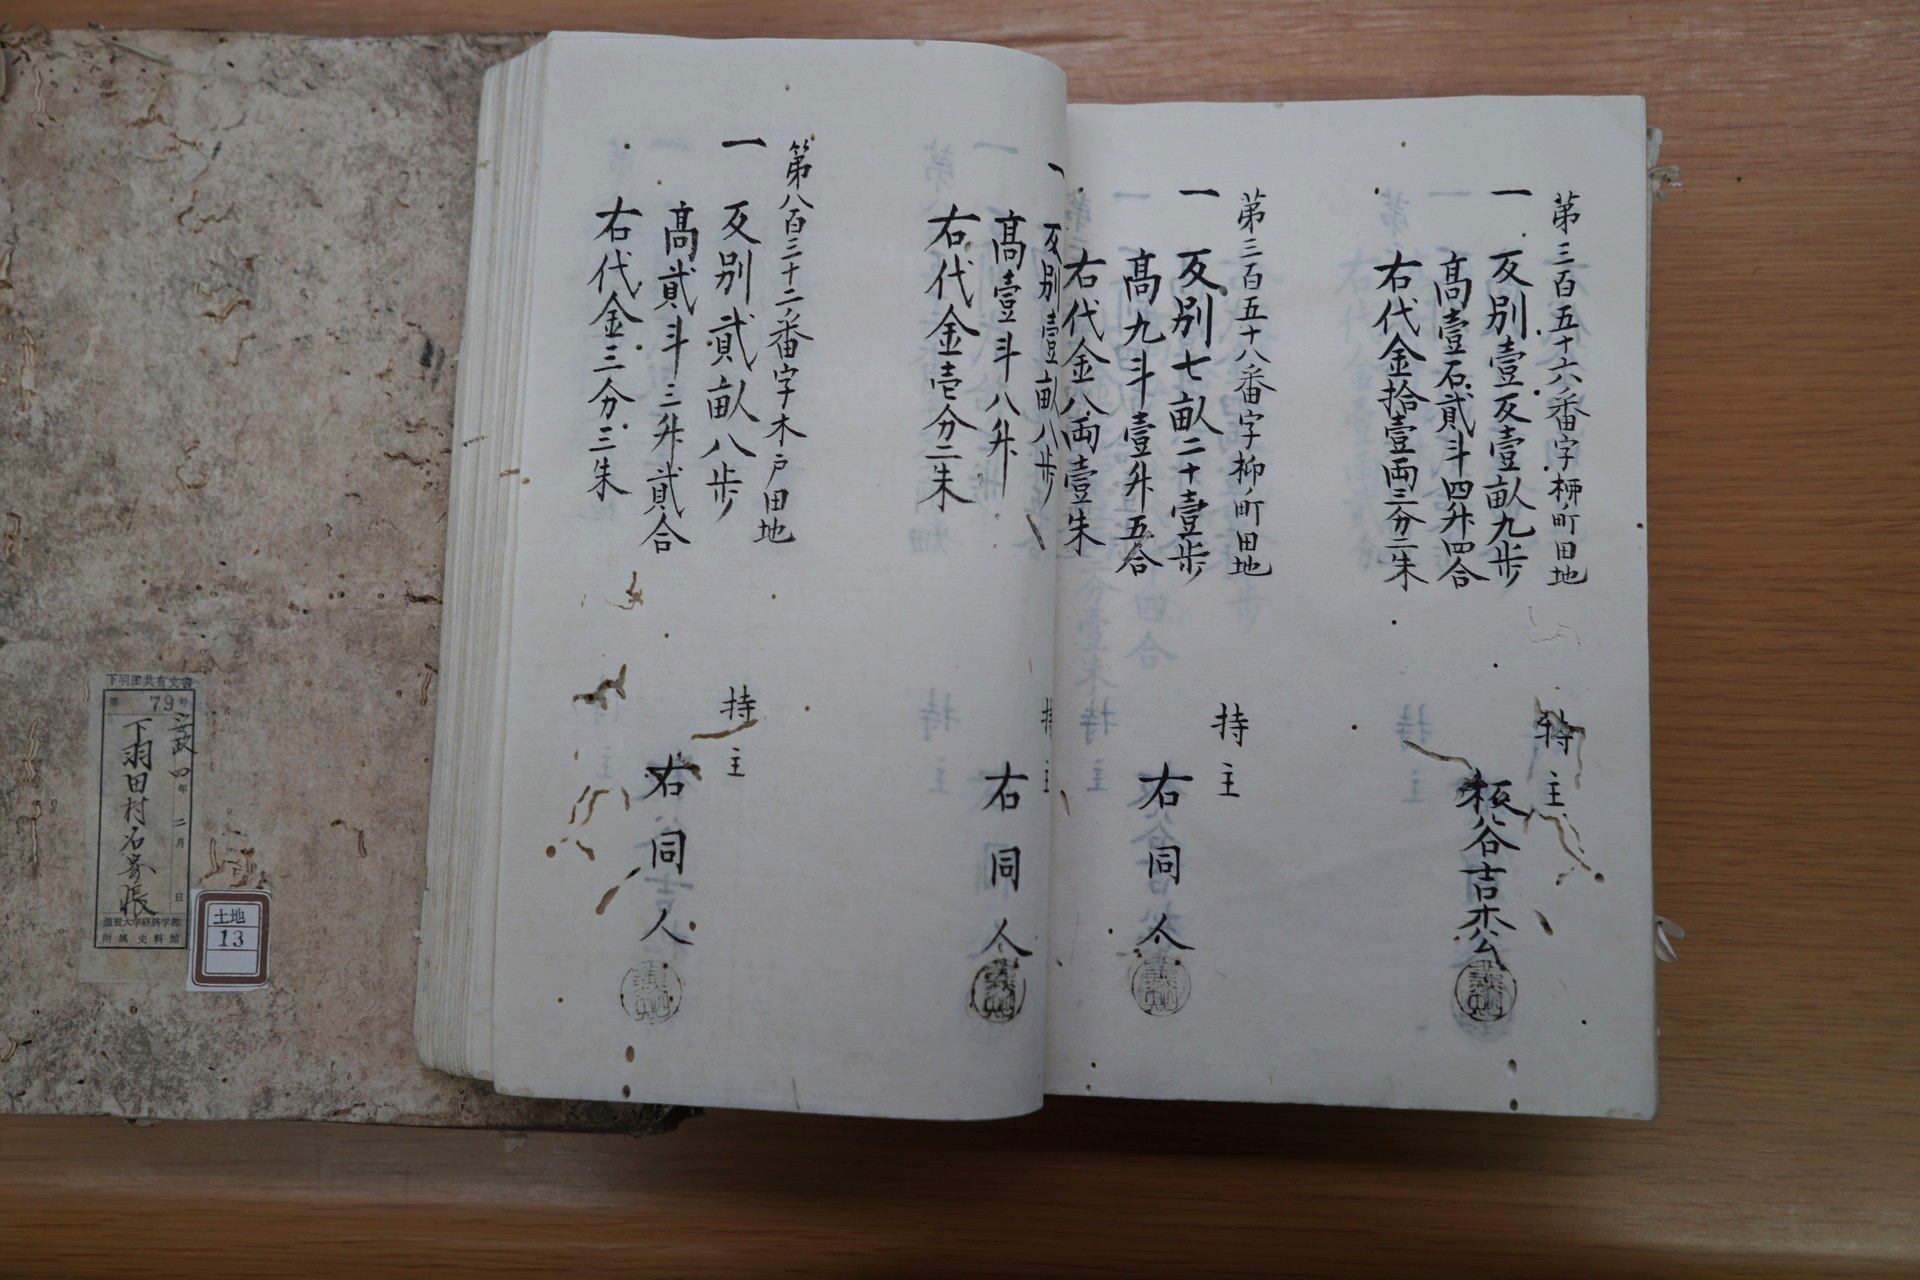 第三百五十六番字柳ノ町田地
一 反別壹反壹畝九歩
高壹石貳斗四升四合
右代金拾壹両三分二朱
持主
板谷吉杢
第三百五十八番字柳ノ町田地
一 反別七畝二十壹歩
高九斗壹升五合
右代金八両壹朱
持主
右同人
一 反別壹畝八歩
高壹斗八升
右代金壱分二朱
持主
右同人
第八百三十二番字木戸田地
一 反別貳畝八歩
高貳斗三升貳合
右代金三分三朱
持主
右同人
下羽田共有文書
第79号
安政四年二月 日
下羽田村名寄帳
滋賀大学経済学部
附属史料館
土地
13